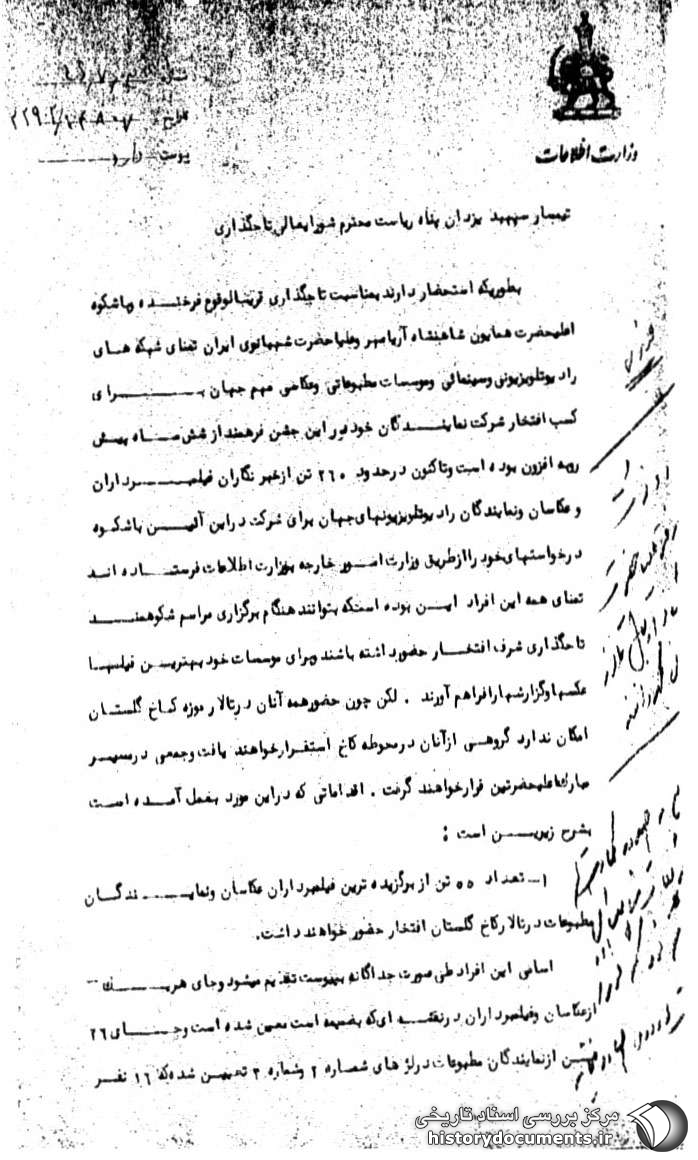 وزارت اطلاعات
شماره
تاریخ
پیوست دارد
تیمسار سپهبد یزدان پناه ریاست محترم شورایعالی تاجگذاری
بطوریکه استحضار دارند بمناسبت تاجگذاری قریب‌الوقوع فرخنده وباشکوه
اعلیحضرت همایون شاهنشاه آریامهر وعلیاحضرت شهبانوی ایران تمنای شبکه های
رادیوتلویزیونی وسینمائی وموسسات مطبوعاتی وعکاسی مهم جهان برای
کسب افتخار شرکت نمایندگان خود در این جشن فرهمند از شش ماه پیش
روبه افزون بوده است وتاکنون در حدود ۲۶۰ تن از خبرنگاران فیلمبرداران
و عکاسان ونمایندگان رادیوتلویزیونهای جهان برای شرکت در این آئین باشکوه
درخواستهای خود را از طریق وزارت امور خارجه بوزارت اطلاعات فرستاده اند
تمنای همه این افراد این بوده است که بتوانند هنگام برگزاری مراسم شکوهمند
تاجگذاری شرف افتخار حضور داشته باشند وبرای موسسات خود بهترین فیلمها
عکسها وگزارشها را فراهم آورند . لکن چون حضور همه آنان در تالار موزه کاخ گلستان
امکان ندارد گروهی از آنان در محوطه کاخ استقرار خواهند یافت وجمعی در مسیر
مبارک اعلیحضرتین قرار خواهند گرفت . اقداماتی که در این مورد بعمل آمده است
بشرح زیرین است :
۱- تعداد ۵۵ تن از برگزیده ترین فیلمبرداران عکاسان ونمایندگان
مطبوعات در تالار کاخ گلستان افتخار حضور خواهند داشت.
اسامی این افراد طی صورت جداگانه بپیوست تقدیم میشود وجای هریک
از عکاسان وفیلمبرداران در نقشه ای که بضمیمه است معین شده است وجای ۲۶
تن از نمایندگان مطبوعات در لژ های شماره ۲ وشماره ۳ تعیین شده که ۱۶ نفر
مرکز بررسی اسناد تاریخی
historydocuments.ir